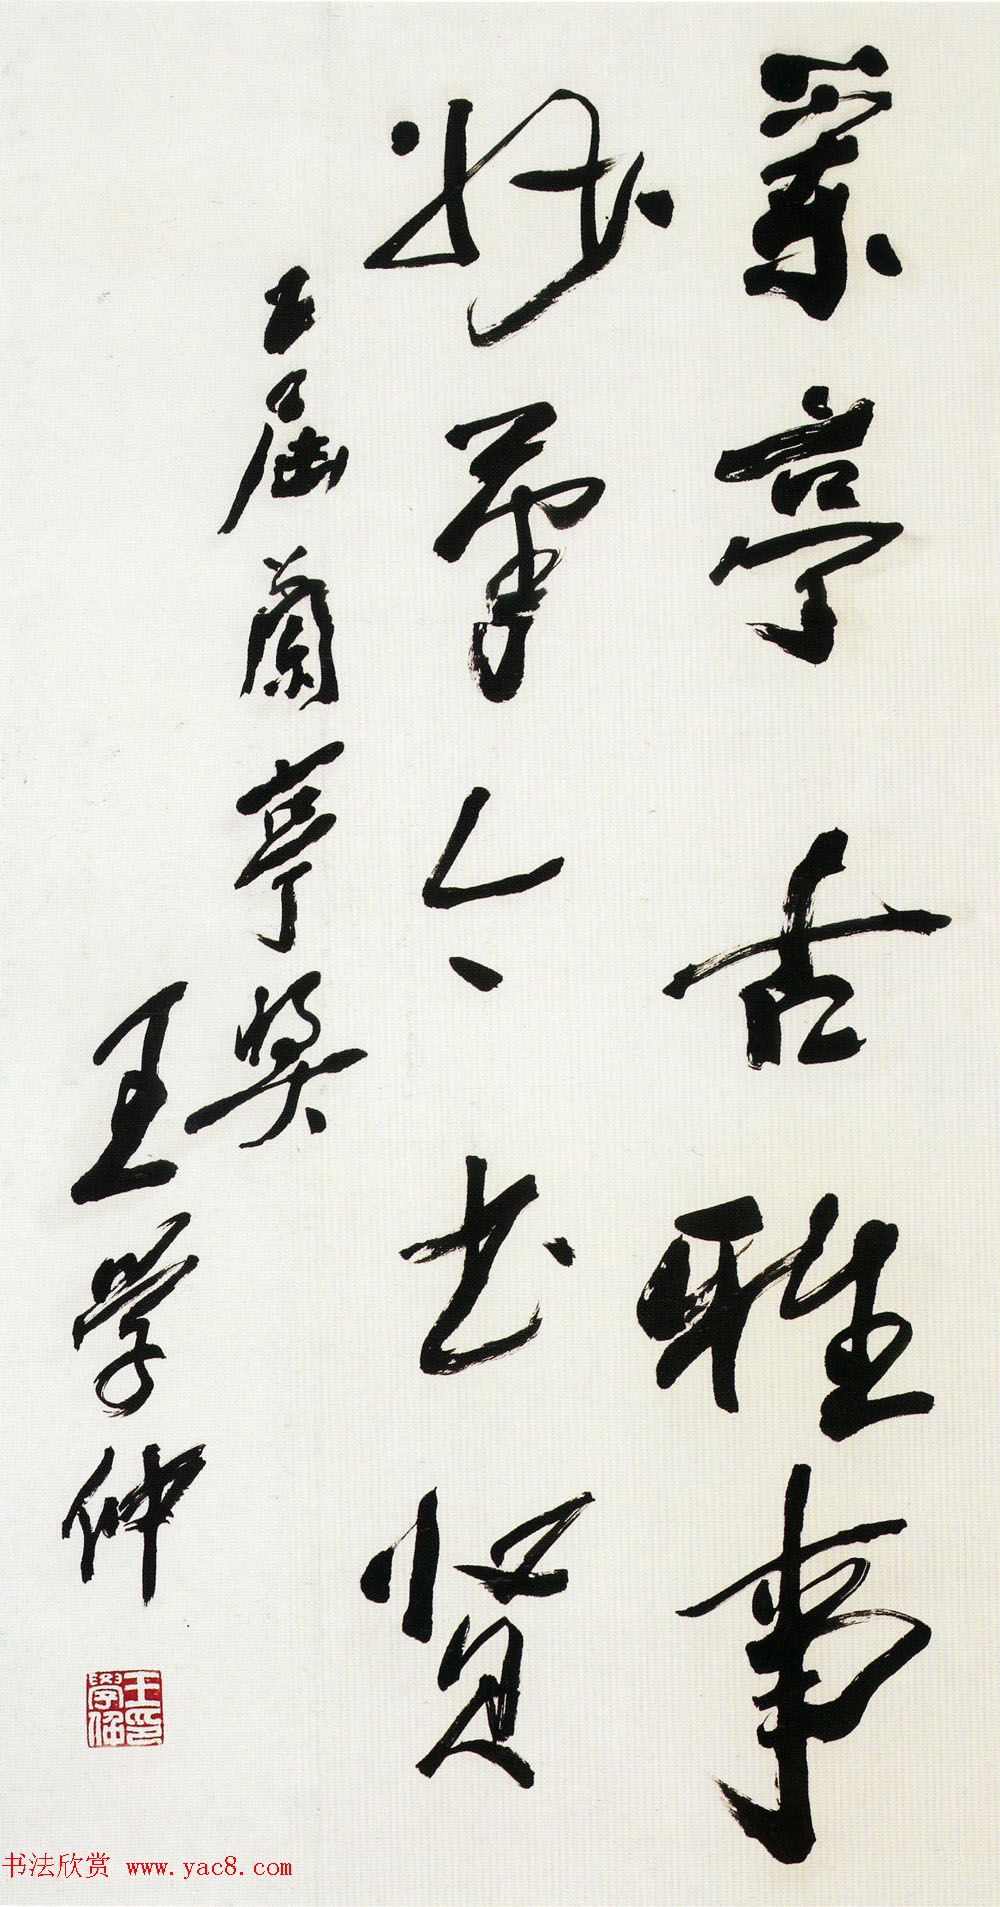 兰亭古雅事
妙笔今书贤
五届兰亭奖
王学仲
王学仲印
书法欣赏 www.yac8.com